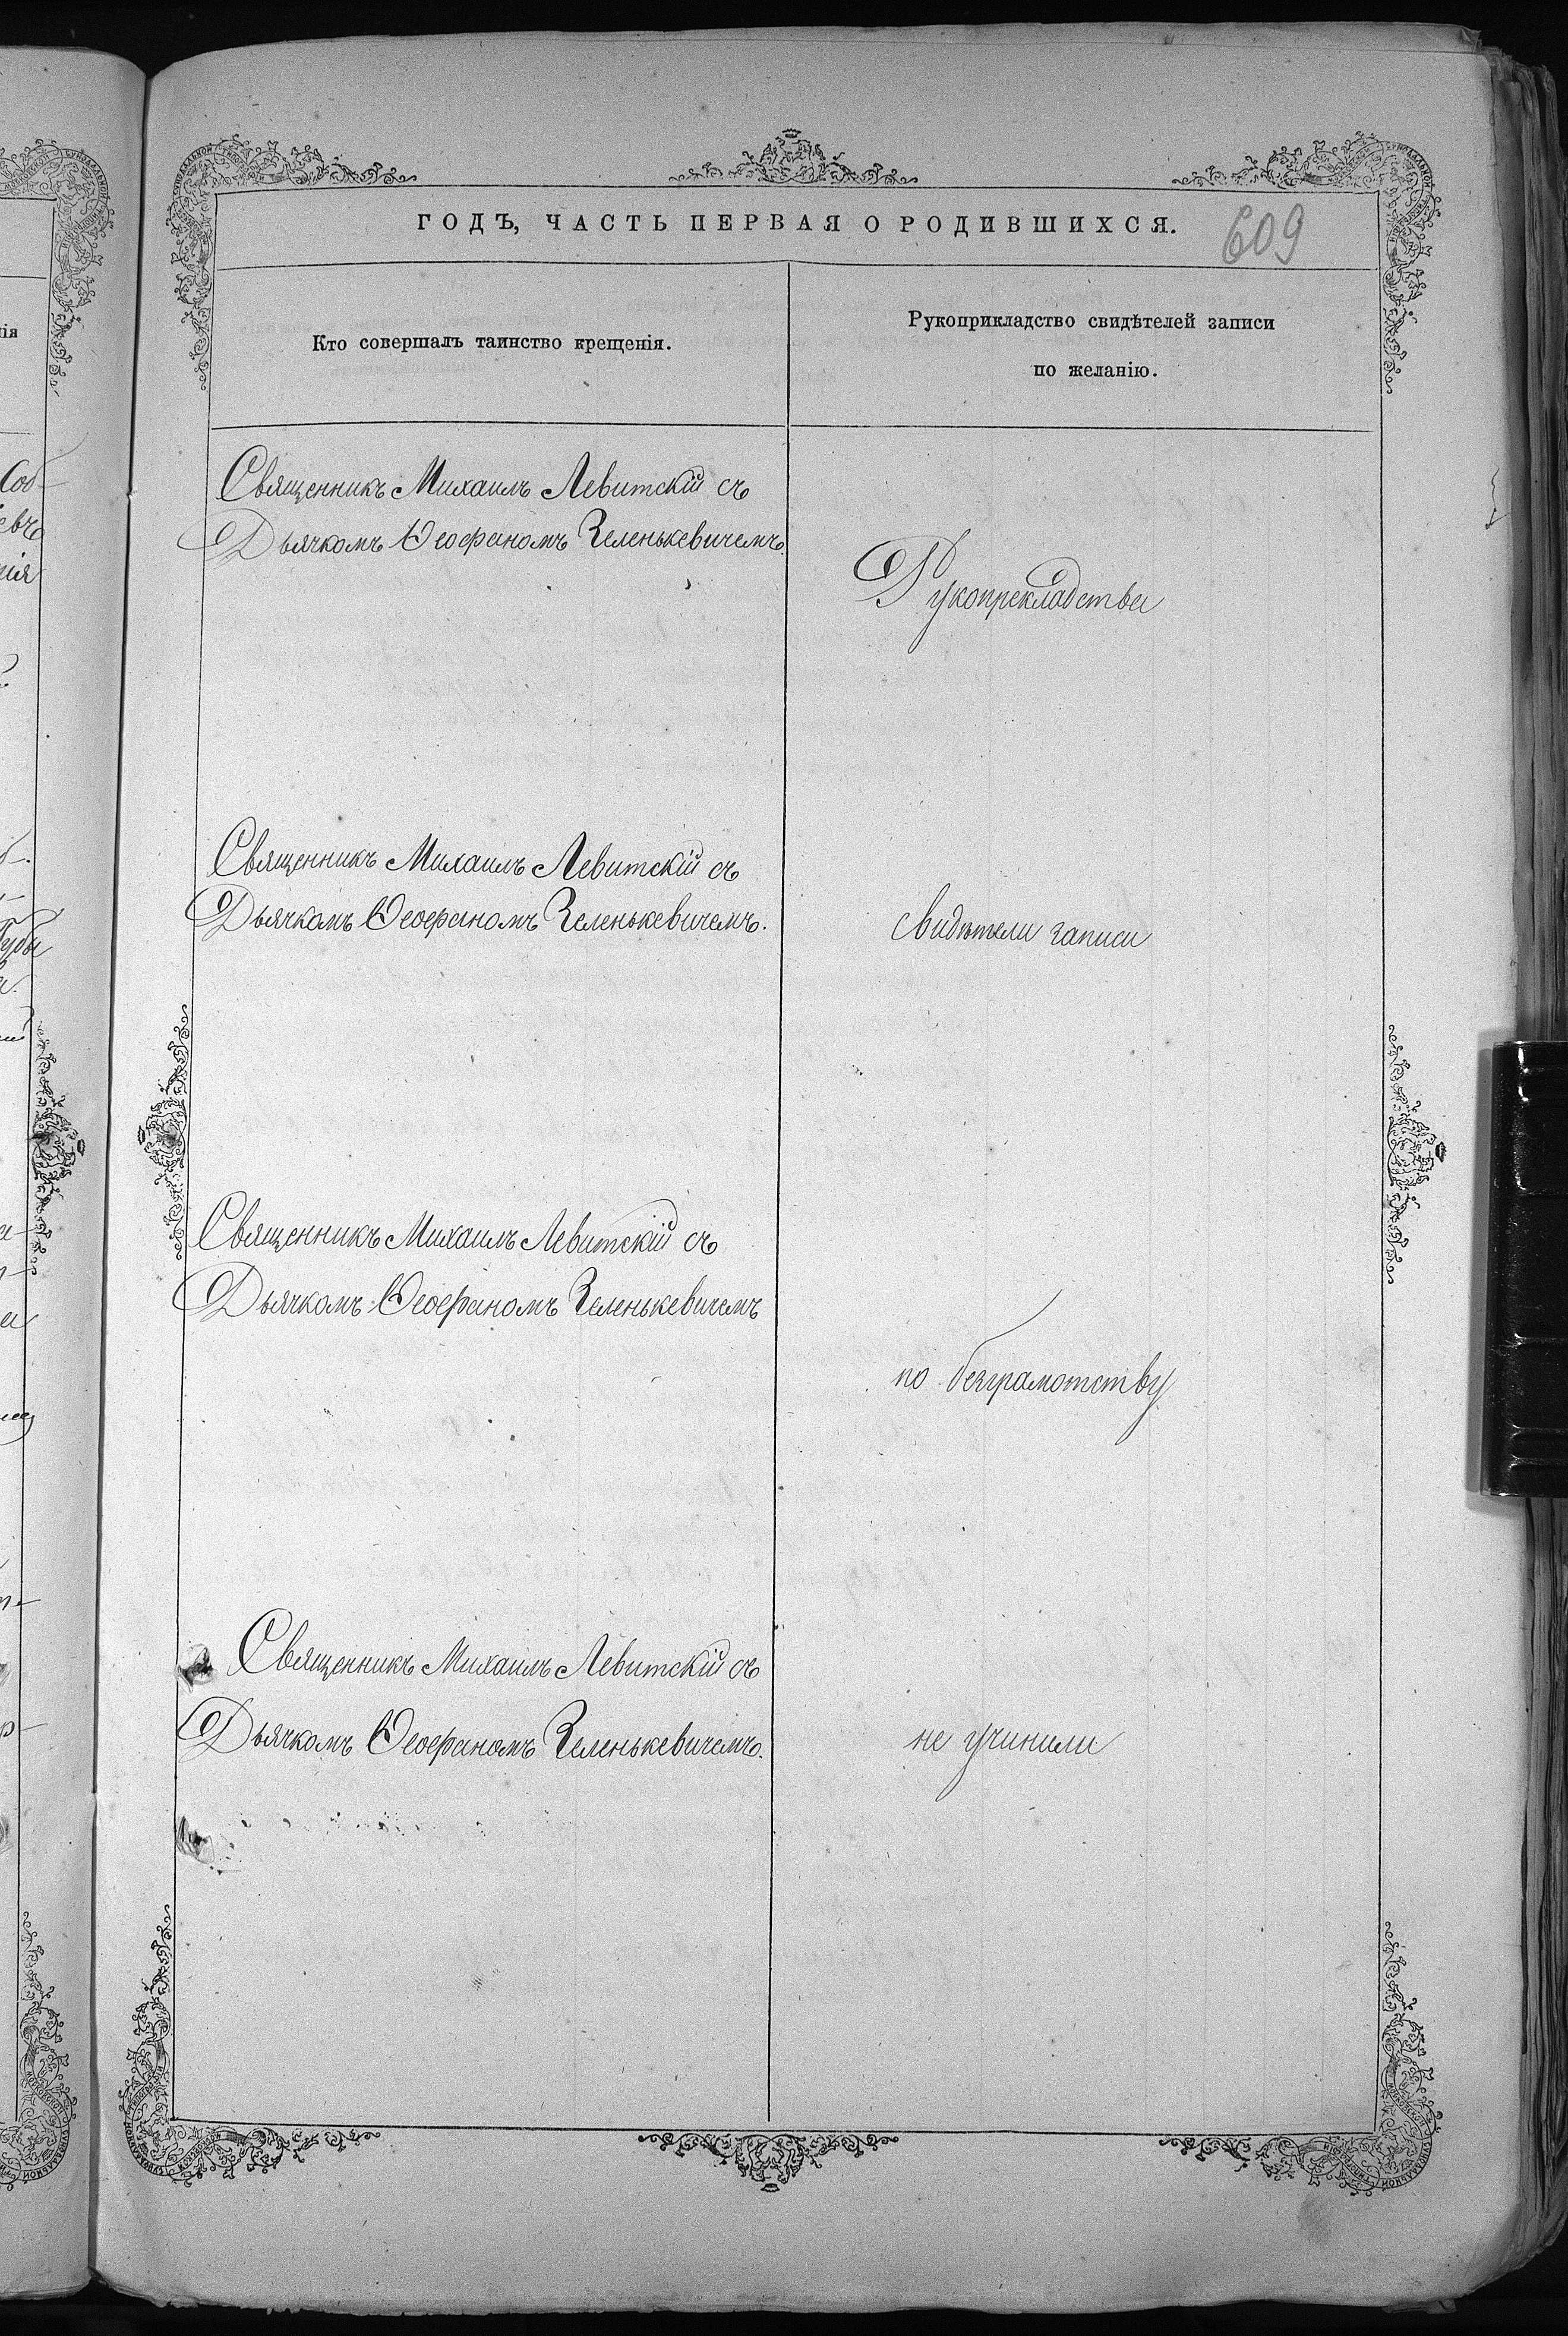 ГОДЪ, ЧАСТЬ ПЕРВАЯ О РОДИВШИХСЯ.
609
Кто совершалъ таинство крещенія.
Рукоприкладство свидѣтелей записи
по желанію.
Священникъ Михаилъ Левитскій съ
Дьячкомъ Ѳеофаномъ Зеленькевичемъ.
Рукопрекладства
Священникъ Михаилъ Левитскій съ
Дьячкомъ Ѳеофаномъ Зеленькевичемъ.
свидѣтели записи
Священникъ Михаилъ Левитскій съ
Дьячкомъ Ѳеофаномъ Зеленькевичемъ
по безграмотству
Священникъ Михаилъ Левитскій съ
Дьячкомъ Ѳеофаномъ Зеленькевичемъ.
не учинили